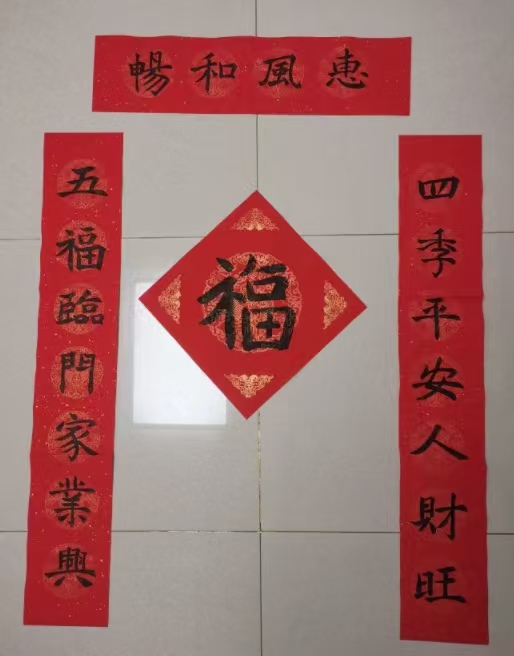 惠風和暢
四季平安人財旺
五福臨門家業興
福